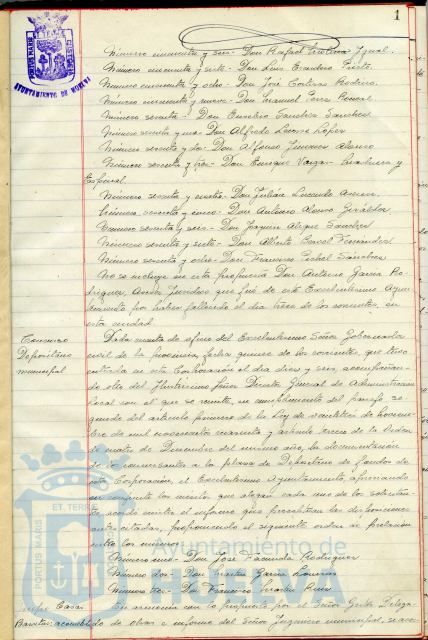 1
AYUNTAMIENTO DE HUELVA
Número cincuenta y seis - Don Rafael Igual.
Número cincuenta y siete - Don Luis Prieto.
Número cincuenta y ocho - Don José Contreras
Número cincuenta y nueve - Don Manuel
Número sesenta - Don Eusebio Sánchez Sánchez
Número sesenta y uno - Don Alfredo López
Número sesenta y dos - Don Alfonso Jimenez Alonso
Número sesenta y tres - Don Enrique Vargas y
Espinal.
Número sesenta y cuatro - Don Julián
Número sesenta y cinco - Don Antonio Alonso Giráldez
Número sesenta y seis - Don Joaquin Sánchez
Número sesenta y siete - Don Alberto Fernandez
Número sesenta y ocho - Don Francisco Sánchez
No se incluye en esta propuesta Don Antonio Garcia Ro-
driguez, que fué de este Excelentisimo Ayun-
tamiento por haber fallecido el día trece de los corrientes, en
esta ciudad.
Concurso
Depositario
municipal
Dada cuenta de oficio del Excelentisimo Señor Gobernador
civil de la provincia, fecha quince de los corrientes, que tuvo
entrada en esta Corporación el día diez y seis, acompañan-
do otro del Ilustrisimo Señor Director General de Administración
Local con el que se remite, en cumplimiento del párrafo se-
gundo del articulo primero de la Ley de veintitres de Noviem-
bre de mil novecientos cuarenta y artículo tercero de la Orden
de cuatro de Diciembre del mismo año, la documentación
de los concursantes a la plaza de Depositario de fondos de
esta Corporación, el Excelentisimo Ayuntamiento,
en conjunto los méritos que alegan cada uno de los solicitan-
tes, acordó emitir el informe que preceptúan las disposiciones
antes citadas, proponiendo el siguiente orden de prelación
entre los mismos:
Número uno - Don José Rodriguez
Número dos - Don Martin Garcia
Número tres - Don Francisco Martin Ruiz
Casa
En armonía con lo propuesto por el Señor Gestor Delega-
do de obras e informe del Señor Ingeniero municipal, se acor-
PORTUS MARIS ET TERRE
Ayuntamiento de
HUELVA